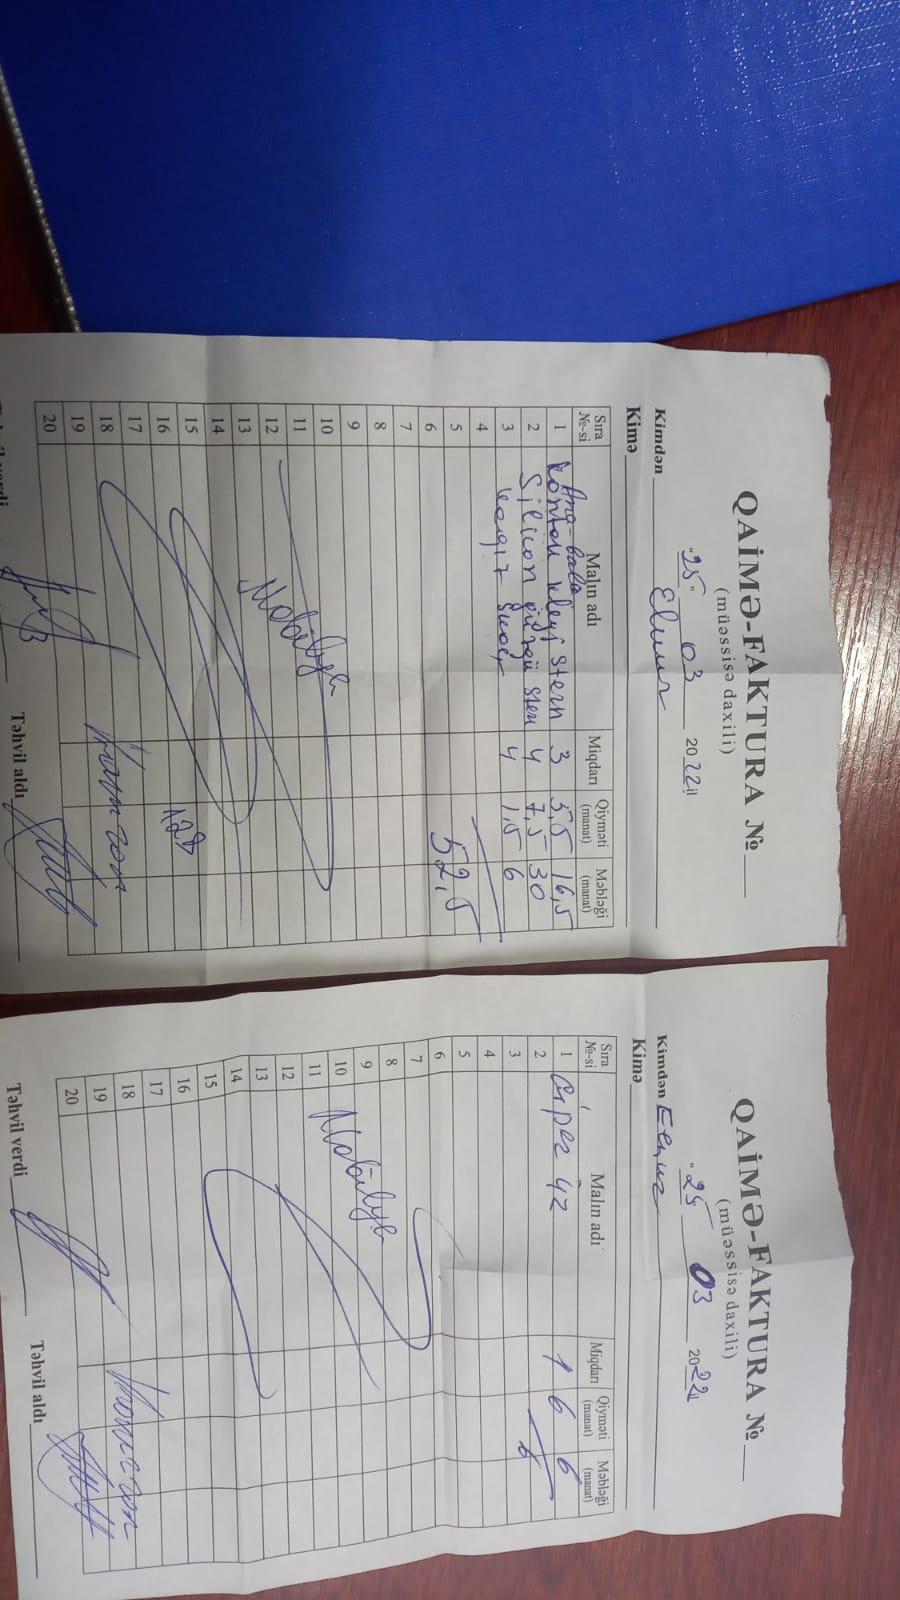 QAİMƏ-FAKTURA №
(müəssisə daxili)
"25" 03 2022 il
Kimdən Elmir
Kimə
Sıra №-si Malın adı Miqdarı Qiyməti (manat) Məbləği (manat)
Ana-bala
1 kontak kleyi stern 3 5,5 16,5
2 Silicon güzgü stern 4 7,5 30
3 kagız 4 1,5 6
4
5 52,5
6
7
8
9
10
11 Mobilya
12
13
14
15
16 128
17
18
19
20
Təhvil verdi Təhvil aldı
QAİMƏ-FAKTURA №
(müəssisə daxili)
"25" 03 2022 il
Kimdən
Kimə
Sıra №-si Malın adı Miqdarı Qiyməti (manat) Məbləği (manat)
1 42 1 6 6
2 6
3
4
5
6
7
8
9
10 Mobilya
11
12
13
14
15
16
17
18
19
20
Təhvil verdi Təhvil aldı